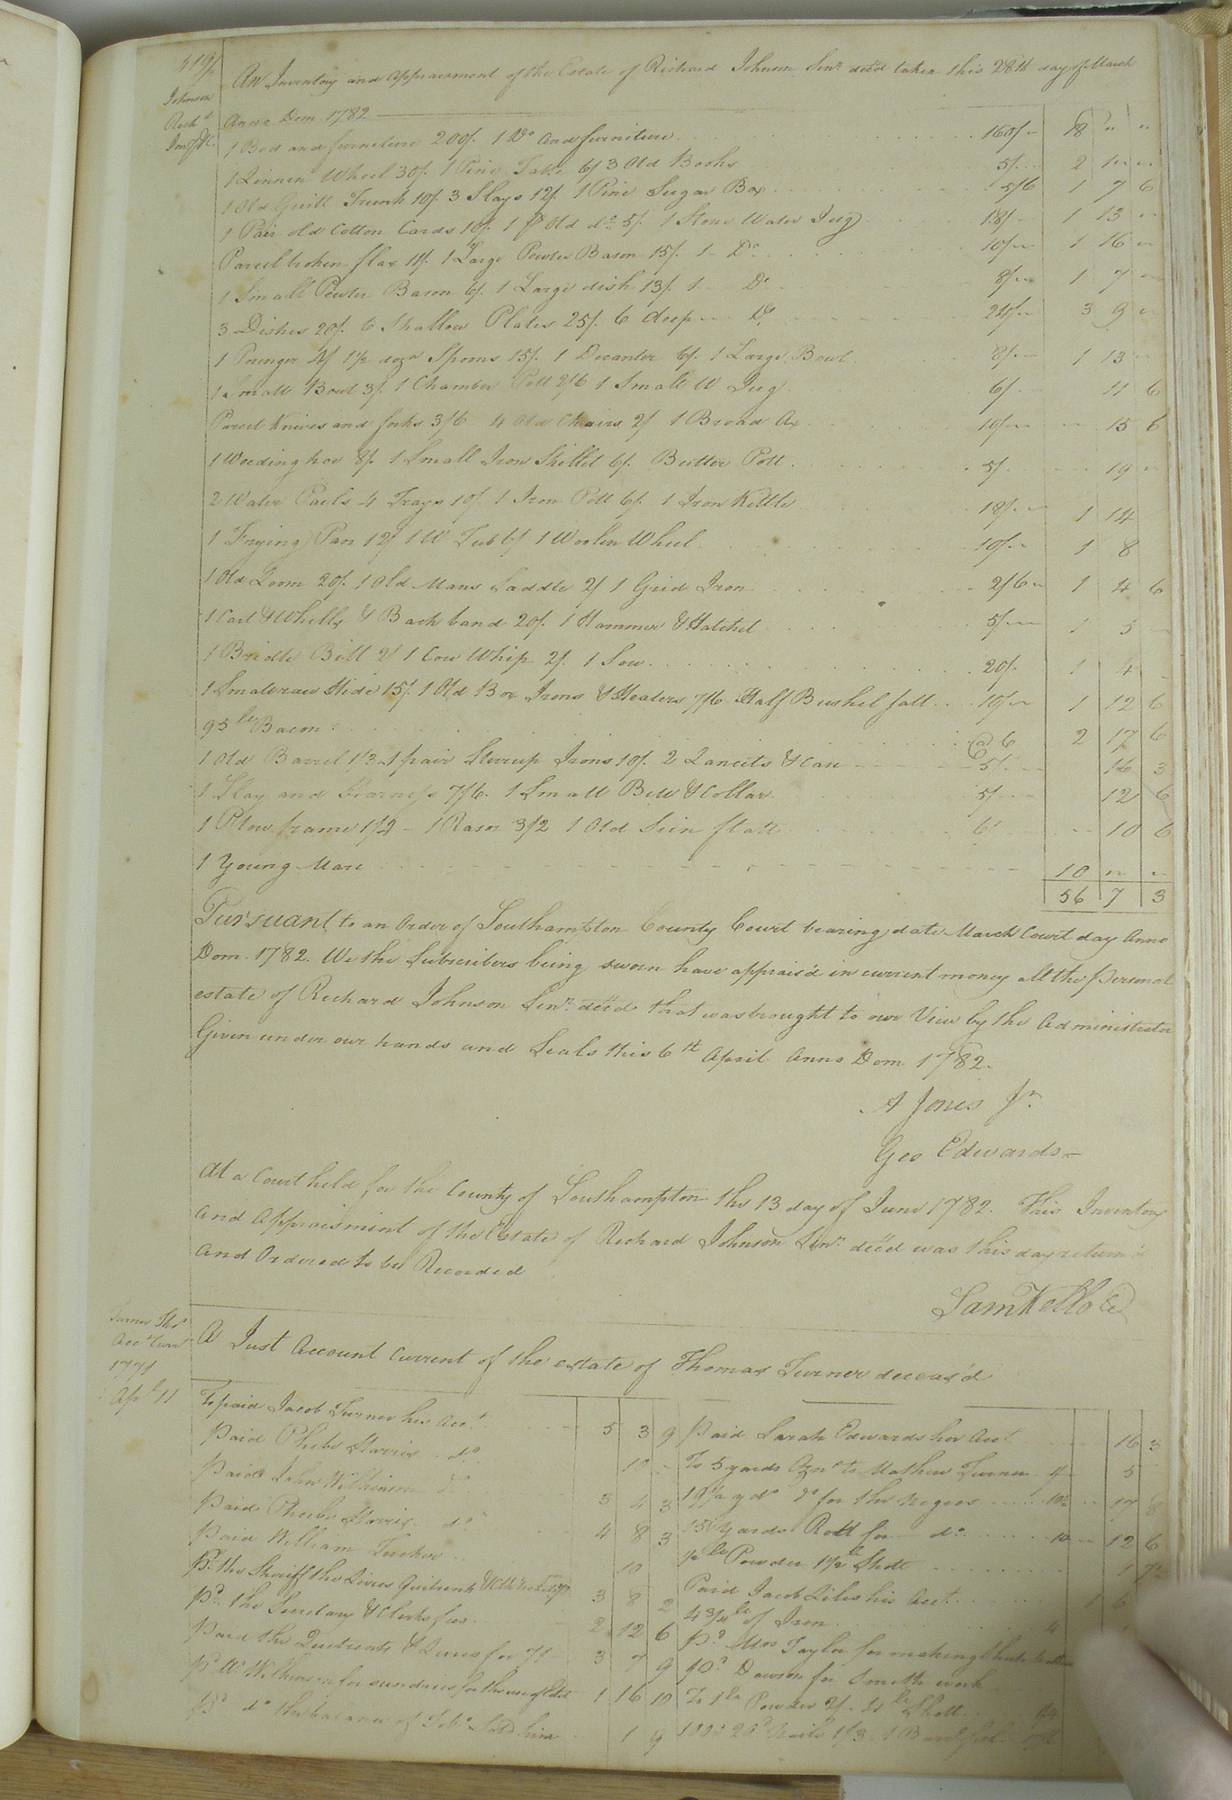 An Inventory and Appraisment of the Estate of Richard Johnson Senr decd taken this 28th day of March
Johnson
Richd
Anno Dom. 1782
1 Bed and furniture 200/. 1 Do and furniture 160/ 18 " "
1 Linnen Wheel 30/. 1 Pine Table 6/ 3 Old Books 5/. 2 1
1 Old Guill Trunk 10/ 3 Slays 12/. 1 Pine Sugar Box 5/6 1 7 6
1 Pair old Cotton Cards 10/. 1 Old do 5/. 1 Stone Water Jug 18/ 1 13
Parcel broken flax 11/. 1 Large Pewter Bason 15/. 1 Do 10/ 1 16
1 Small Pewter Bason 6/. 1 Large dish 13/. 1 Do 8/ 1 7
3 Dishes 20/. 6 Shallow Plates 25/. 6 deep Do 24/ 3 9
1 Poringer 4/ 1½ dozn Spoons 15/. 1 Decanter 6/. 1 Large Bowl 8/ 1 13
1 Small Bowl 3/. 1 Chamber Pott 2/6 1 Small W Jug 6/ 11 6
Parcel Knives and forks 3/6 4 Old Chairs 2/ 1 Broad Ax 10/ 15 6
1 Weeding hoe 8/. 1 Small Iron Skillet 6/. Butter Pott 5/. 19
2 Water Pails 4 Trays 10/. 1 Iron Pott 6/. 1 Iron Kettle 18/ 1 14
1 Frying Pan 12/ 1 W Tub 6/ 1 Woolen Wheel 10/ 1 8
1 Old Loom 20/. 1 Old Mans Saddle 2/ 1 Grid Iron 2/6 1 4 6
1 Cart & Whells & Back band 20/. 1 Hammer & Hatchel 5/ 1 5
1 Bridle Bitt 2/ 1 Cow Whip 2/. 1 Sow 20/. 1 4
1 Small raw Hide 15/. 1 Old Box Irons & Heaters 7/6 Half Bushel salt 10/ 1 12 6
95 lb Bacon @ 6 2 17 6
1 Old Barrel 1/3 1 pair Sterrup Irons 10/. 2 Lancets & Case 5/. 16 3
1 Slay and Harness 7/6. 1 Small Bell & Collar 5/ 12 6
1 Plow frame 1/2 1 Rasor 3/2 1 Old Sein 6/ 10 6
1 Young Mare 10
56 7 3
Pursuant to an Order of Southampton County Court bearing date March Court day Anno
Dom. 1782. We the Subscribers being sworn have apprais'd in current money all the personal
estate of Richard Johnson Senr decd that was brought to our View by the Administrator
Given under our hands and Seals this 6th April Anno Dom 1782.
A Jones Jr
Geo Edwards
At a Court held for the County of Southampton the 13 day of June 1782. This Inventory
and Appraisment of the Estate of Richard Johnson Senr decd was this day return'd
and Ordered to be Recorded
Sam Kello
Turner Thos
Acct Curt
1771
Apl 11
A Just Account Current of the estate of Thomas Turner deceas'd
To paid Jacob Turner his Acct 5 3 9
Paid Phebe Harris do 10
Paid John Wilkinson do 3 4 3
Paid Phebe Harris do 4 8 3
Paid William Tucker 10
Pd the Sheriff the Levies Quitrents 3 8 2
Pd the Secretary & Clerks fees 2 12 6
Paid the Quitrents & Levies for 71 3 7 9
Pd W Wilkinson for sundries for the use of 1 16 10
Pd do the balance of 1 9
Paid Sarah Edwards her Acct 16 3
To 5 yards to Mathew Turner 5
do for the Negroes
yards Roll for do 10 12 6
Powder 1½ lb Shott
Paid Jacob his Acct 1 6
4 3/4 lb of Iron 4
Pd Mrs Taylor for making
Pd Dawson for Smiths work
To 1 lb Powder 2/ Shott